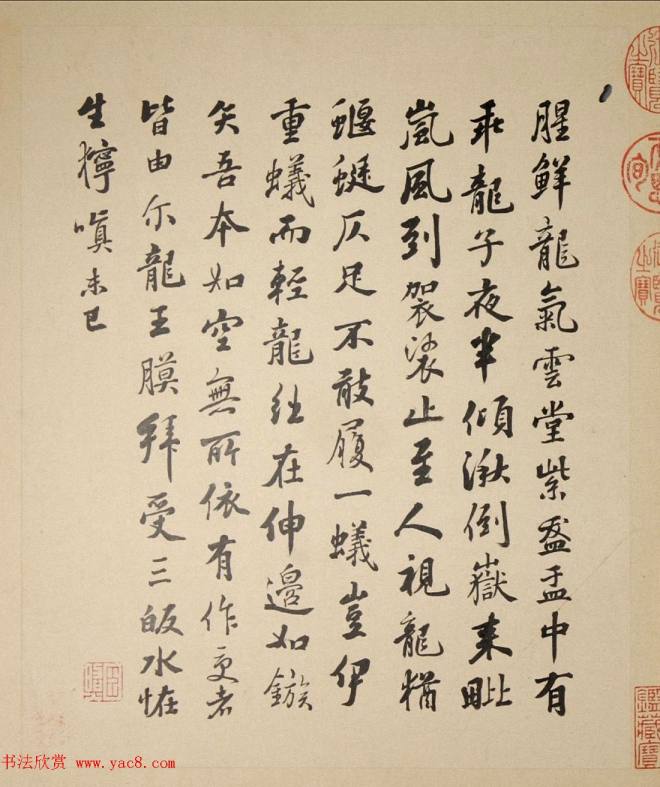 腥鮮龍氣雲堂紫盋盂中有
乖龍子夜半傾湫倒嶽来毗
嵐風到袈裟止至人視龍猶
蝘蜓仄足不敢履一蟻豈伊
重蟻而輕龍在伸邊如鏃
矢吾本如空無所依有作更者
皆由尔龍王膜拜受三皈水怪
生獰嗔未已
鑑藏寶
书法欣赏 www.yac8.com